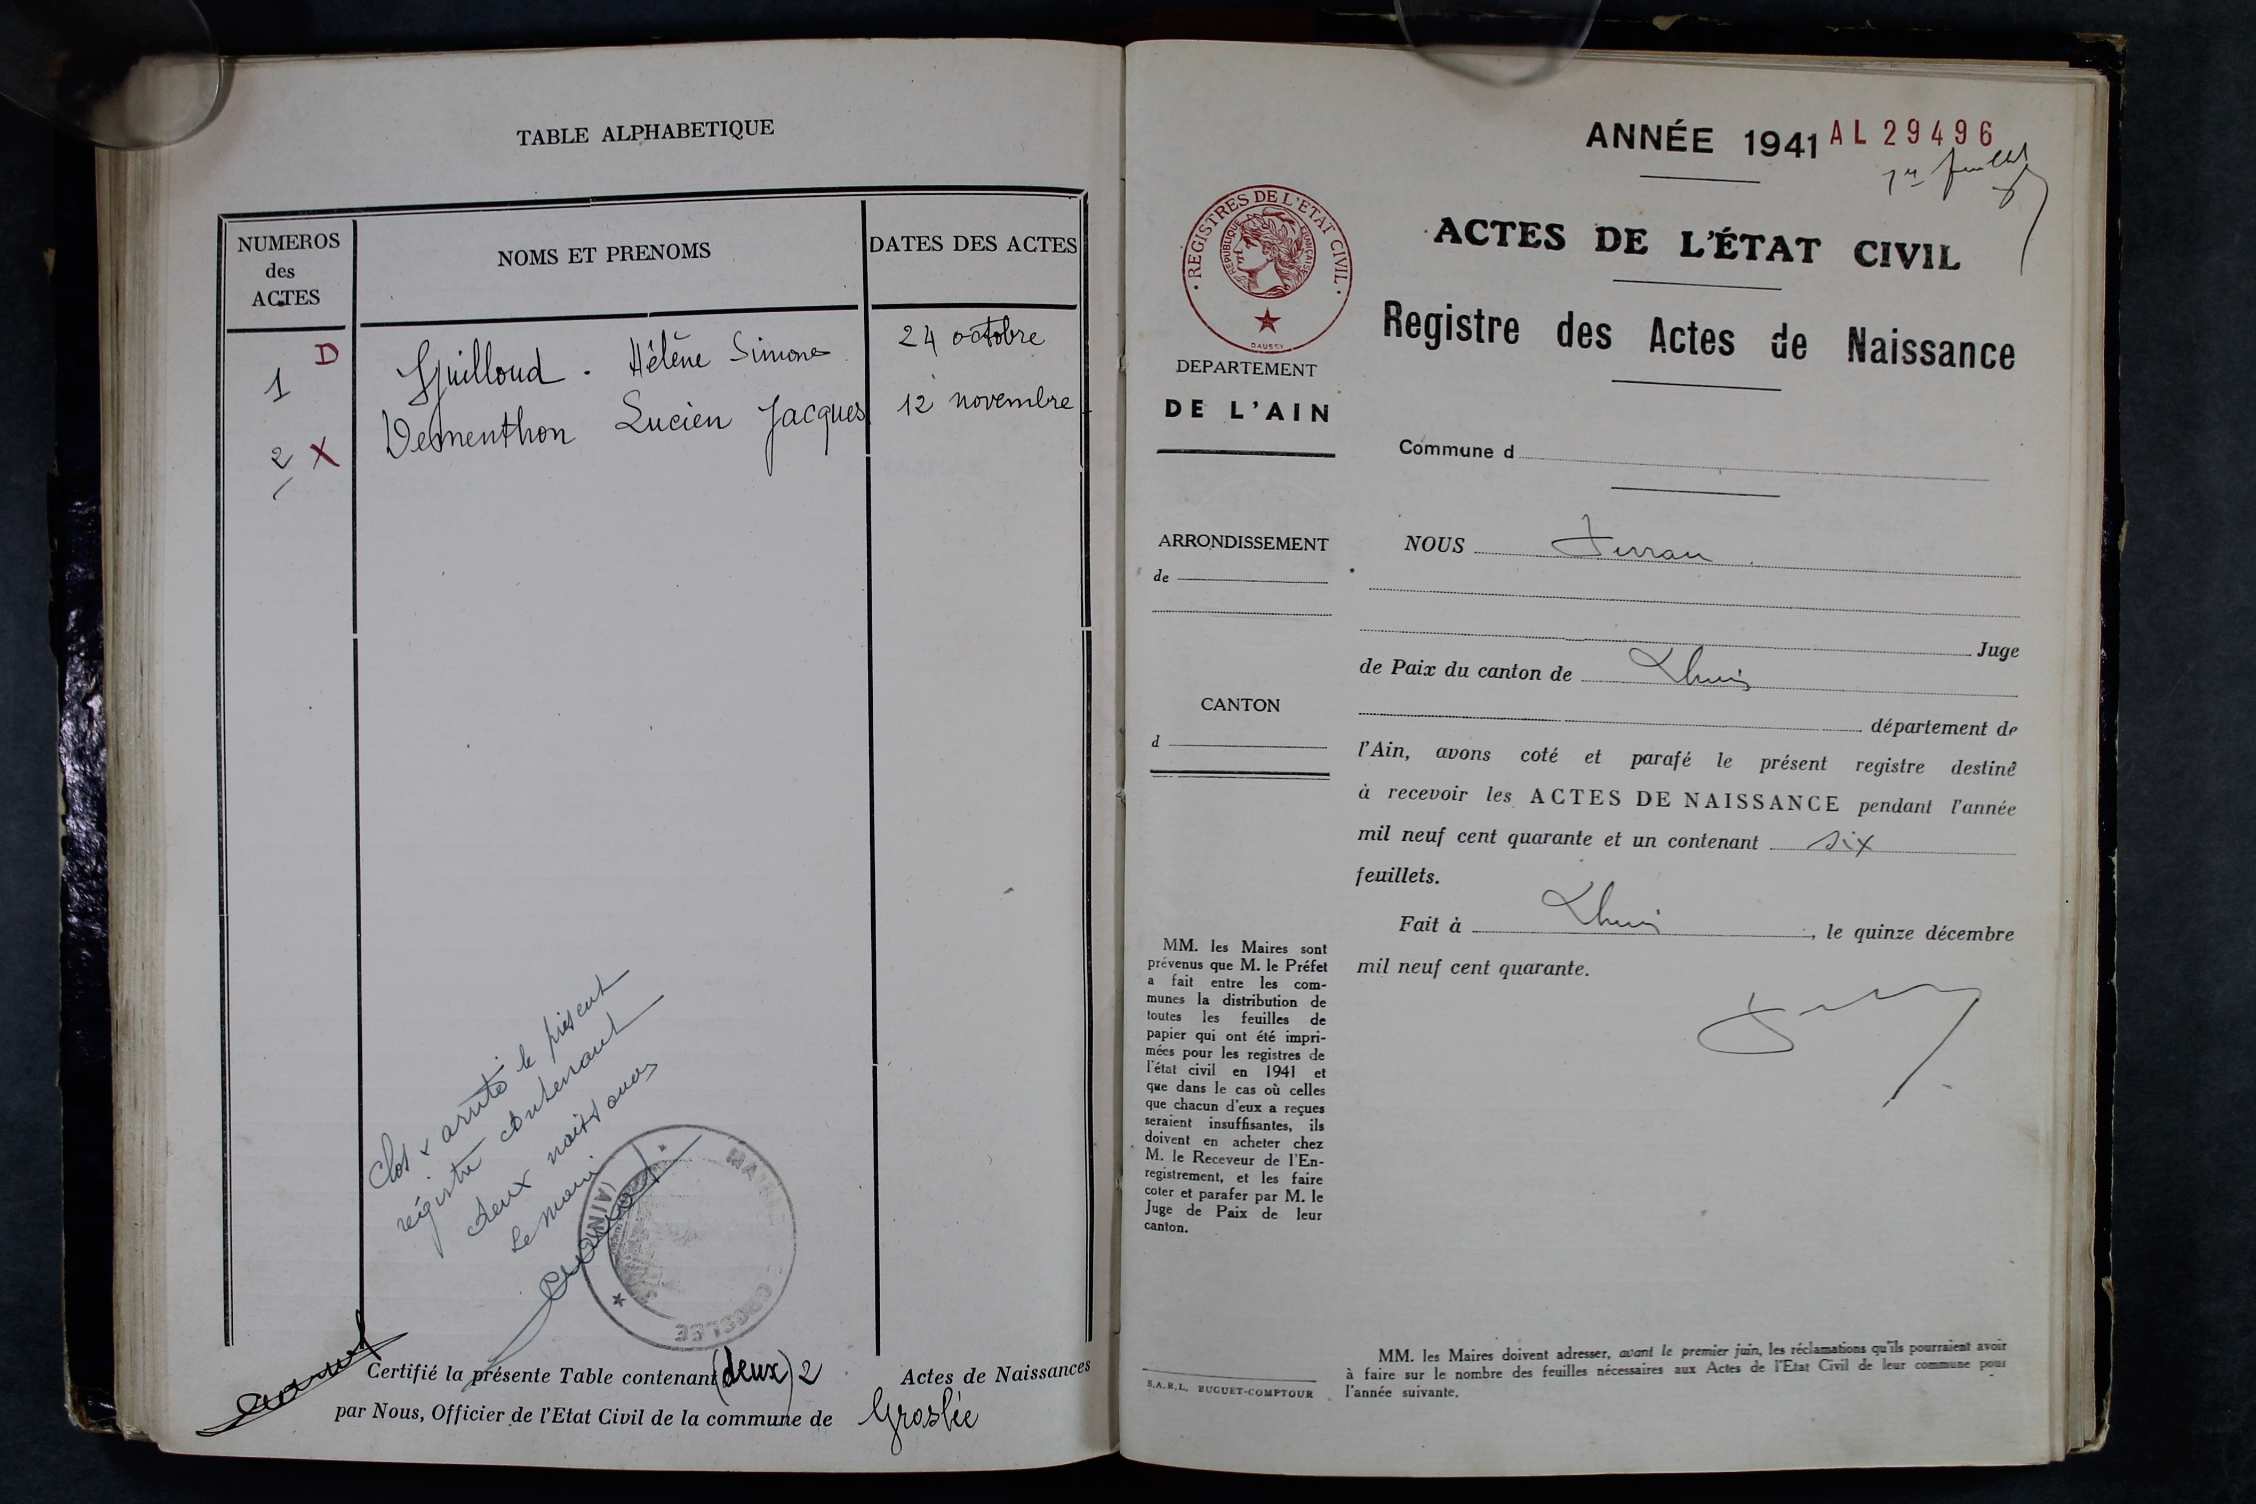 TABLE ALPHABETIQUE
NUMEROS
des
ACTES
NOMS ET PRENOMS
DATES DES ACTES
1 D Guilloud. Hélène Simone 24 octobre
2 X Dementhon Lucien Jacques 12 novembre
Clos & arrêté le présent
régistre contenant
deux naissances
Le maire
MAIRIE
GROSLEE
(AIN)
Certifié la présente Table contenant (deux) 2 Actes de Naissances
par Nous, Officier de l'Etat Civil de la commune de Groslée
ANNÉE 1941 AL 29496
1er feuillet
REGISTRES DE L'ETAT CIVIL
REPUBLIQUE FRANÇAISE
DAUSSY
ACTES DE L'ÉTAT CIVIL
Registre des Actes de Naissance
DEPARTEMENT
DE L'AIN
Commune d
ARRONDISSEMENT
de
CANTON
d
NOUS
Juge
de Paix du canton de Lhuis
département de
l'Ain, avons coté et parafé le présent registre destiné
à recevoir les ACTES DE NAISSANCE pendant l'année
mil neuf cent quarante et un contenant six
feuillets.
Fait à Lhuis, le quinze décembre
mil neuf cent quarante.
MM. les Maires sont
prévenus que M. le Préfet
a fait entre les com-
munes la distribution de
toutes les feuilles de
papier qui ont été impri-
mées pour les registres de
l'état civil en 1941 et
que dans le cas où celles
que chacun d'eux a reçues
seraient insuffisantes, ils
doivent en acheter chez
M. le Receveur de l'En-
registrement, et les faire
coter et parafer par M. le
Juge de Paix de leur
canton.
S.A.R.L. BUGUET-COMPTOUR
MM. les Maires doivent adresser, avant le premier juin, les réclamations qu'ils pourraient avoir
à faire sur le nombre des feuilles nécessaires aux Actes de l'Etat Civil de leur commune pour
l'année suivante.